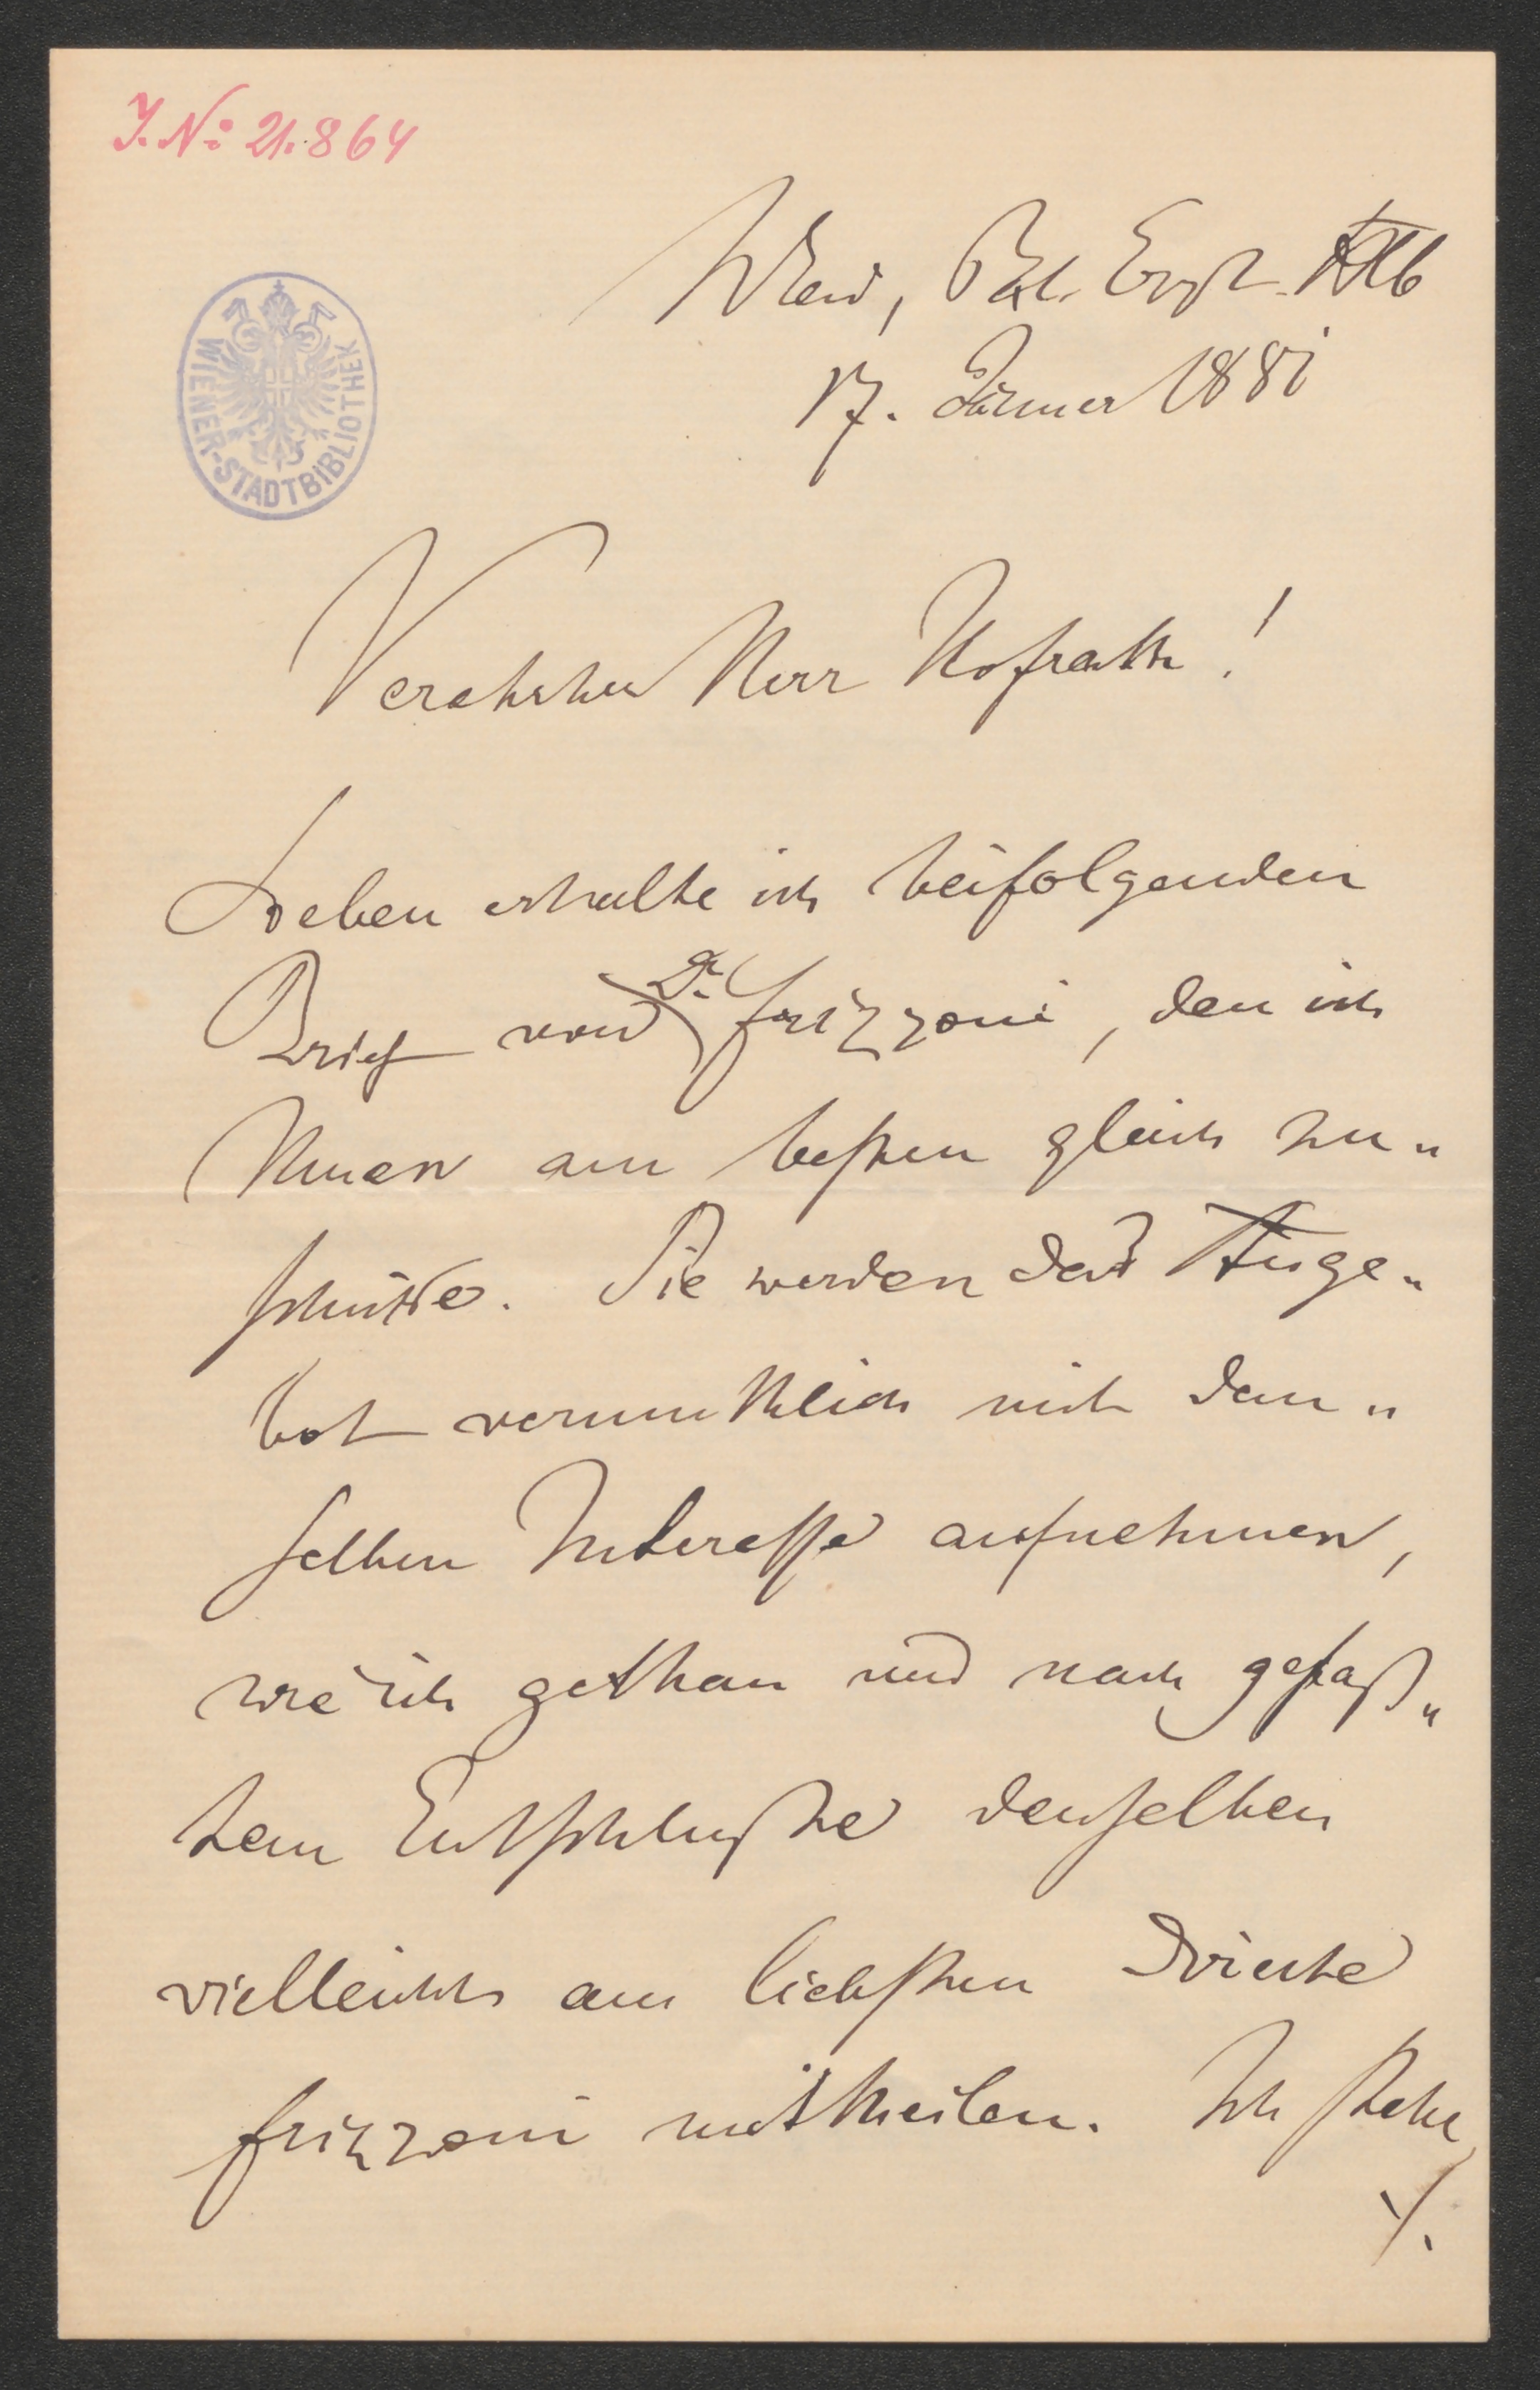 I. N.o 21.864
WIENER-STADTBIBLIOTHEK
Wien, Pal. Erzh. Alb
17. Jänner 1881
Verehrter Herr Hofrath!
Soeben erhalte ich beifolgenden
Brief von Dr. Frizzoni, den ich
Ihnen am besten gleich zu„
schicke. Sie werden das Ange„
bot vermuthlich mit dem„
selben Interesse aufnehmen,
wie ich gethan und nach gefaß„
tem Entschlusse denselben
vielleicht am liebsten Directe
Frizzoni mittheilen. Ich stehe
./.